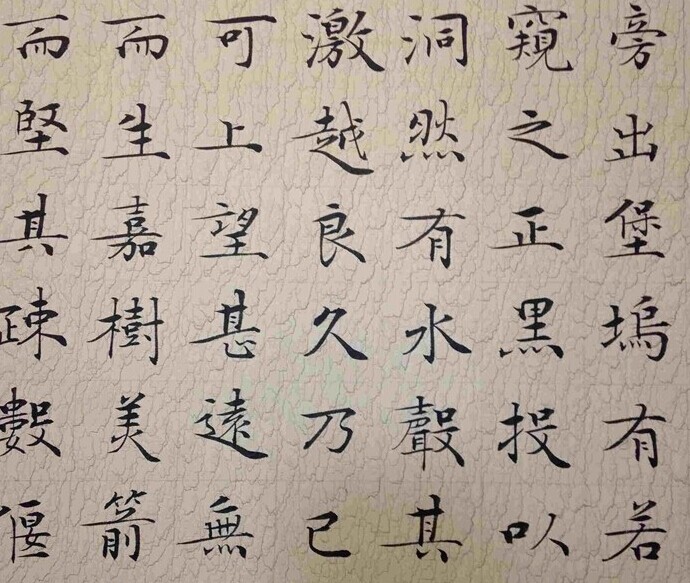 旁出堡塢有若
窺之正黑投以
洞然有水聲其
激越良久乃已
可上望甚遠無
而生嘉樹美箭
而堅其疎數偃